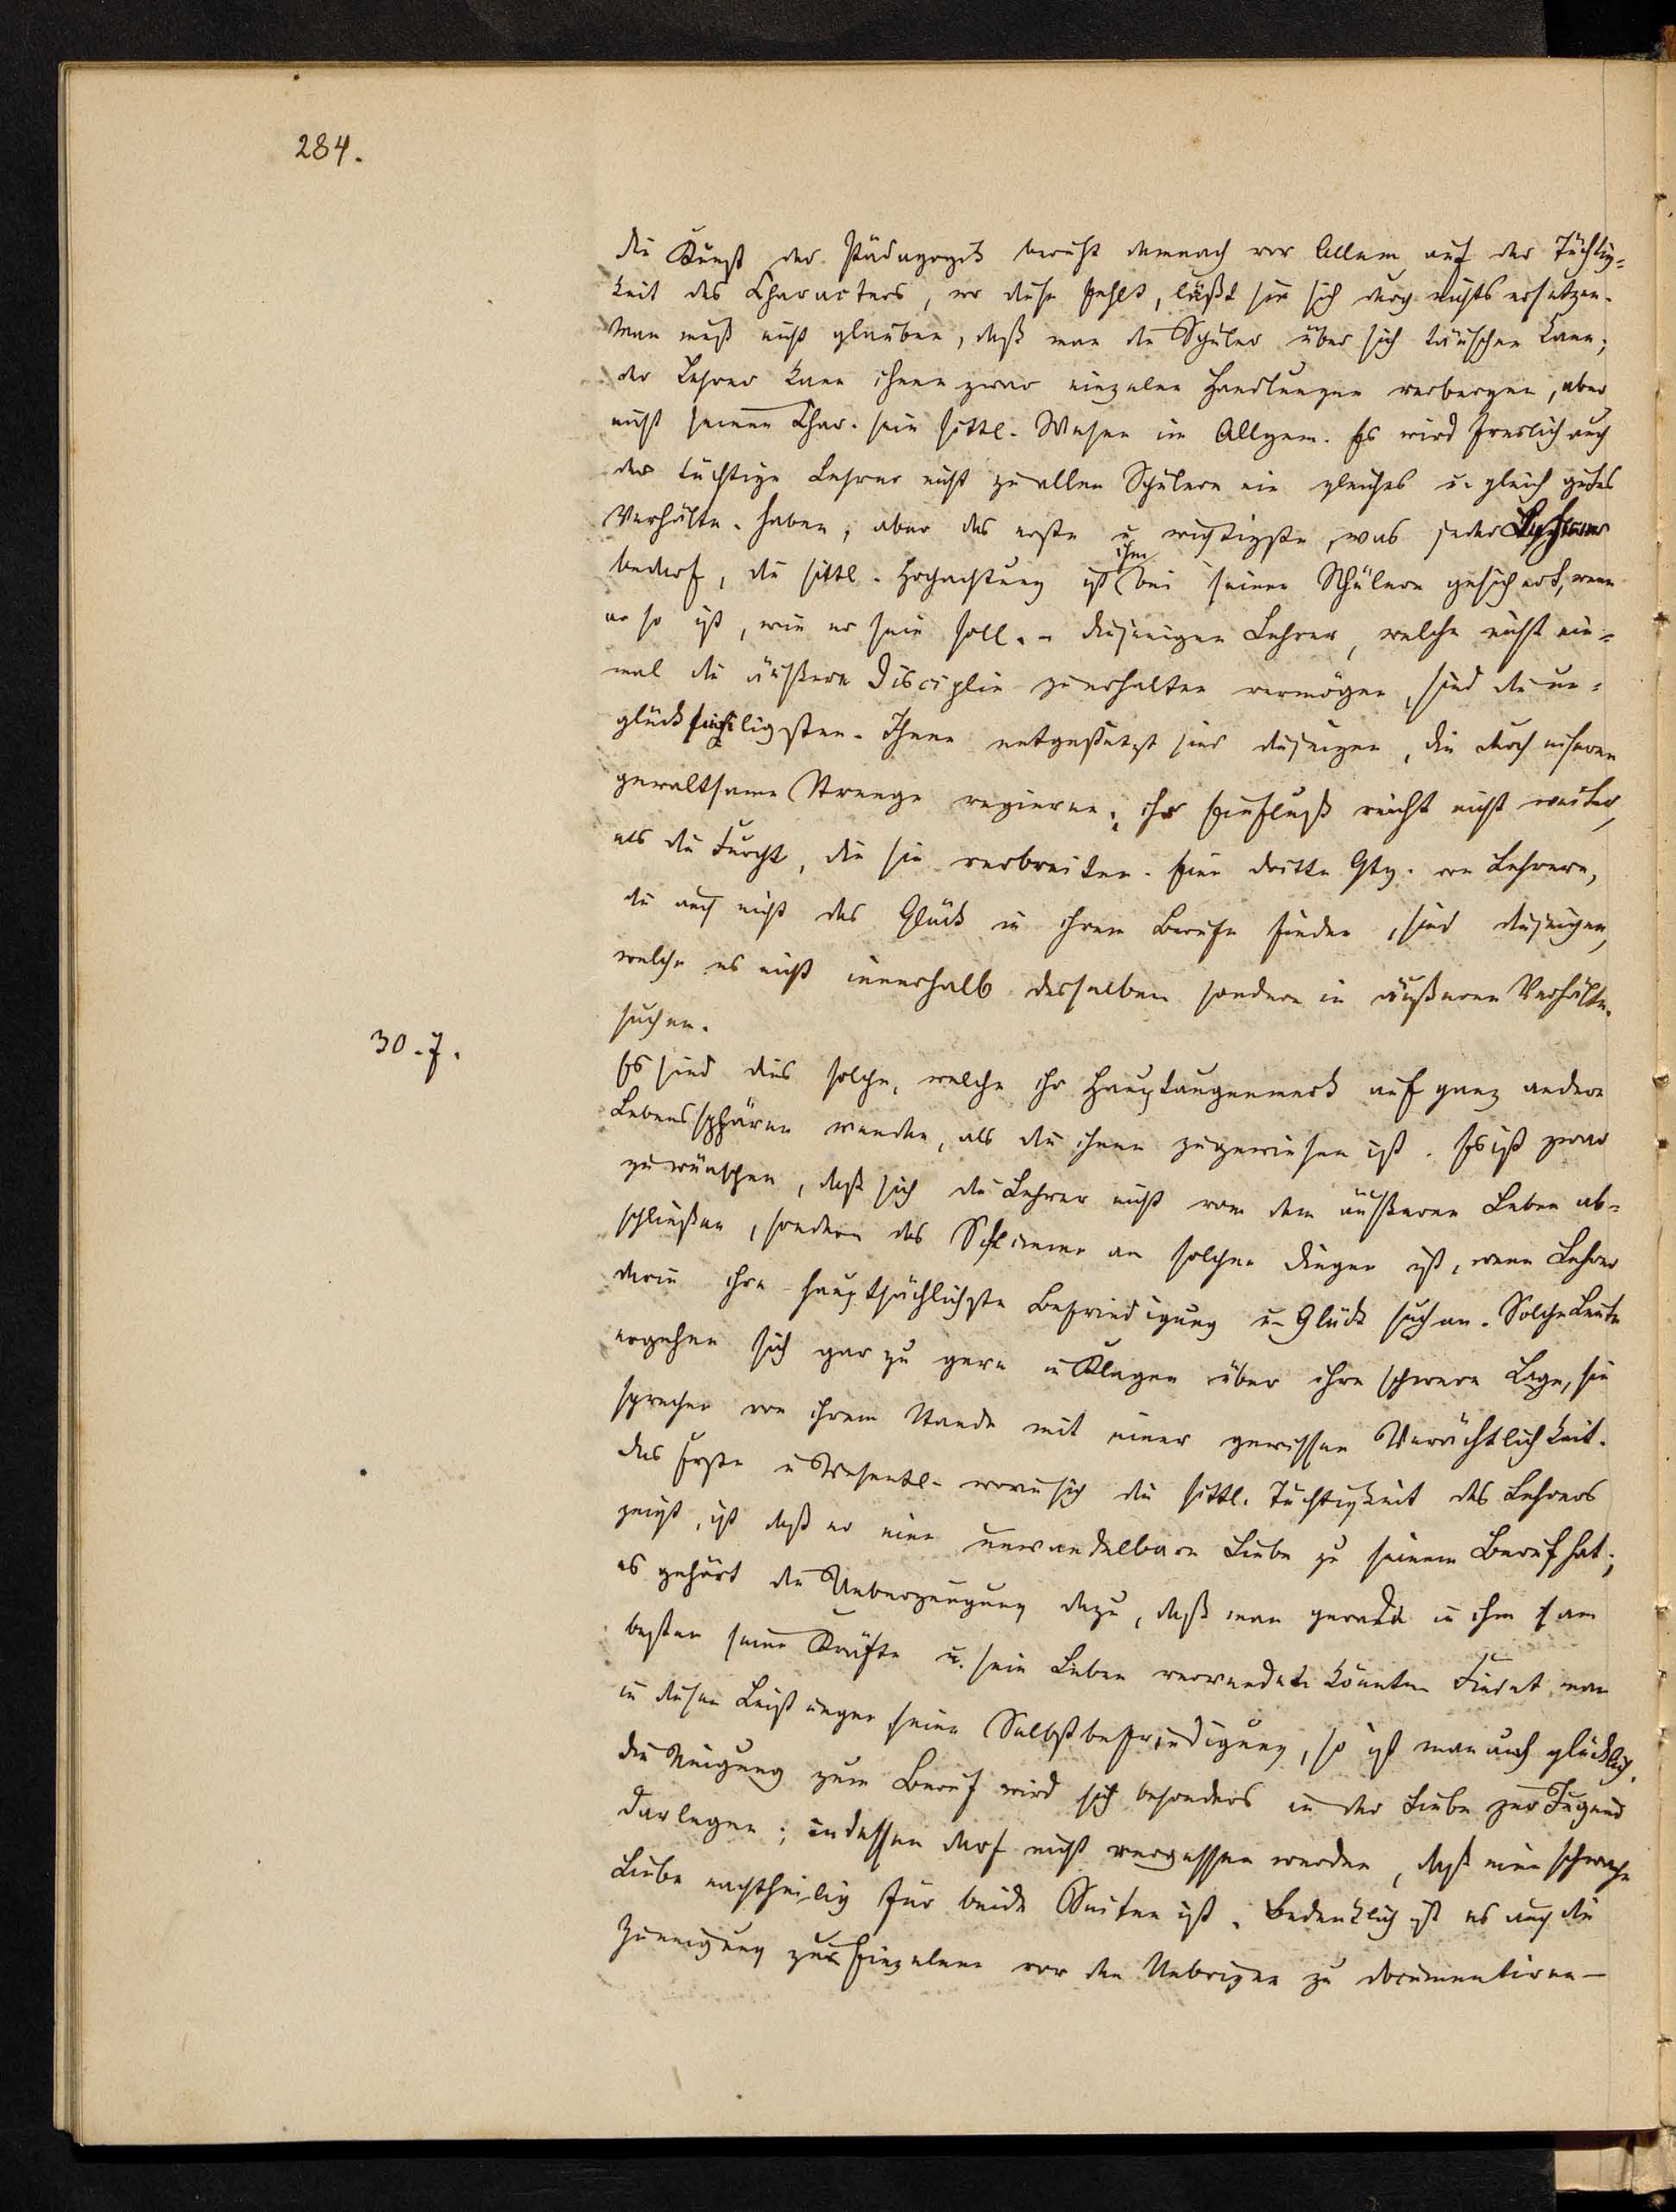 284.
die Kunst der Pädagogik beruht demnach vor Allem auf der Tüchtig=
keit des Characters, wo diese fehlt, läßt sie sich durch nichts ersetzen.
Man muß nicht glauben, daß man die Schüler über sich täuschen kann;
der Lehrer kann ihnen zwar einzelne Handlungen verbergen, aber
nicht seinen Char. sein sittl. Wesen im Allgem. Es wird freilich auch
der tüchtige Lehrer nicht zu allen Schülern ein gleiches u. gleich gutes
Verhältn. haben, aber das erste u. wichtigste, was jeder Lehrer
bedarf, die sittl. Hochachtung ist ihm bei seinen Schülern gesichert, wenn
er so ist, wie er sein soll. – diejenigen Lehrer, welche nicht ein=
mal die äußere Disciplin zu erhalten vermögen, sind die un=
glückseligsten. Ihnen entgegengesetzt sind diejenigen, die durch
gewaltsame Strenge regieren; ihr Einfluß reicht nicht weiter,
als die Furcht, die sie verbreiten. Eine dritte Gtg. von Lehrern,
die auch nicht das Glück in ihrem Berufe finden, sind diejenigen,
welche es nicht innerhalb desselben sondern in äußeren Verhältn.
suchen.
30.7.
Es sind dies solche, welche ihr Hauptaugenmerk auf ganz andere
Lebenssphären wenden, als die ihnen zugewiesen ist. Es ist zwar
zu wünschen, daß sich die Lehrer nicht von dem äußeren Leben ab=
schließen, sondern das Schlimme an solchen Dingen ist, wenn Lehrer
darin ihre hauptsächlichste Befriedigung u. Glück suchen. Solche Leute
ergehen sich gar zu gern in Klagen über ihre schwere Lage, sie
sprechen von ihrem Stande mit einer gewissen Verächtlichkeit.
das Erste u. Wesentl. worin sich die sittl. Tüchtigkeit des Lehrers
zeigt, ist daß er eine unwandelbare Liebe zu seinem Beruf hat;
es gehört die Ueberzeugung dazu, daß man gerade in ihm am
besten seine Kräfte u. sein Leben verwenden könnte. Findet man
in diesen Leistungen seine Selbstbefriedigung, so ist man auch glücklich.
die Neigung zum Beruf wird sich besonders in der Liebe zur Jugend
darlegen; indessen darf nicht vergessen werden, daß eine schwache
Liebe nachtheilig für beide Seiten ist. Bedenklich ist es auch die
Zuneigung zu Einzelnen vor den Uebrigen zu documentiren –